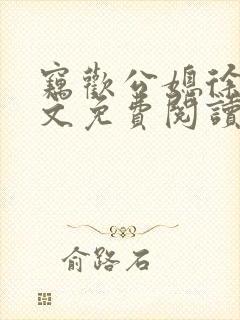 竊歡公媳徐
文免費閱讀
俞路石